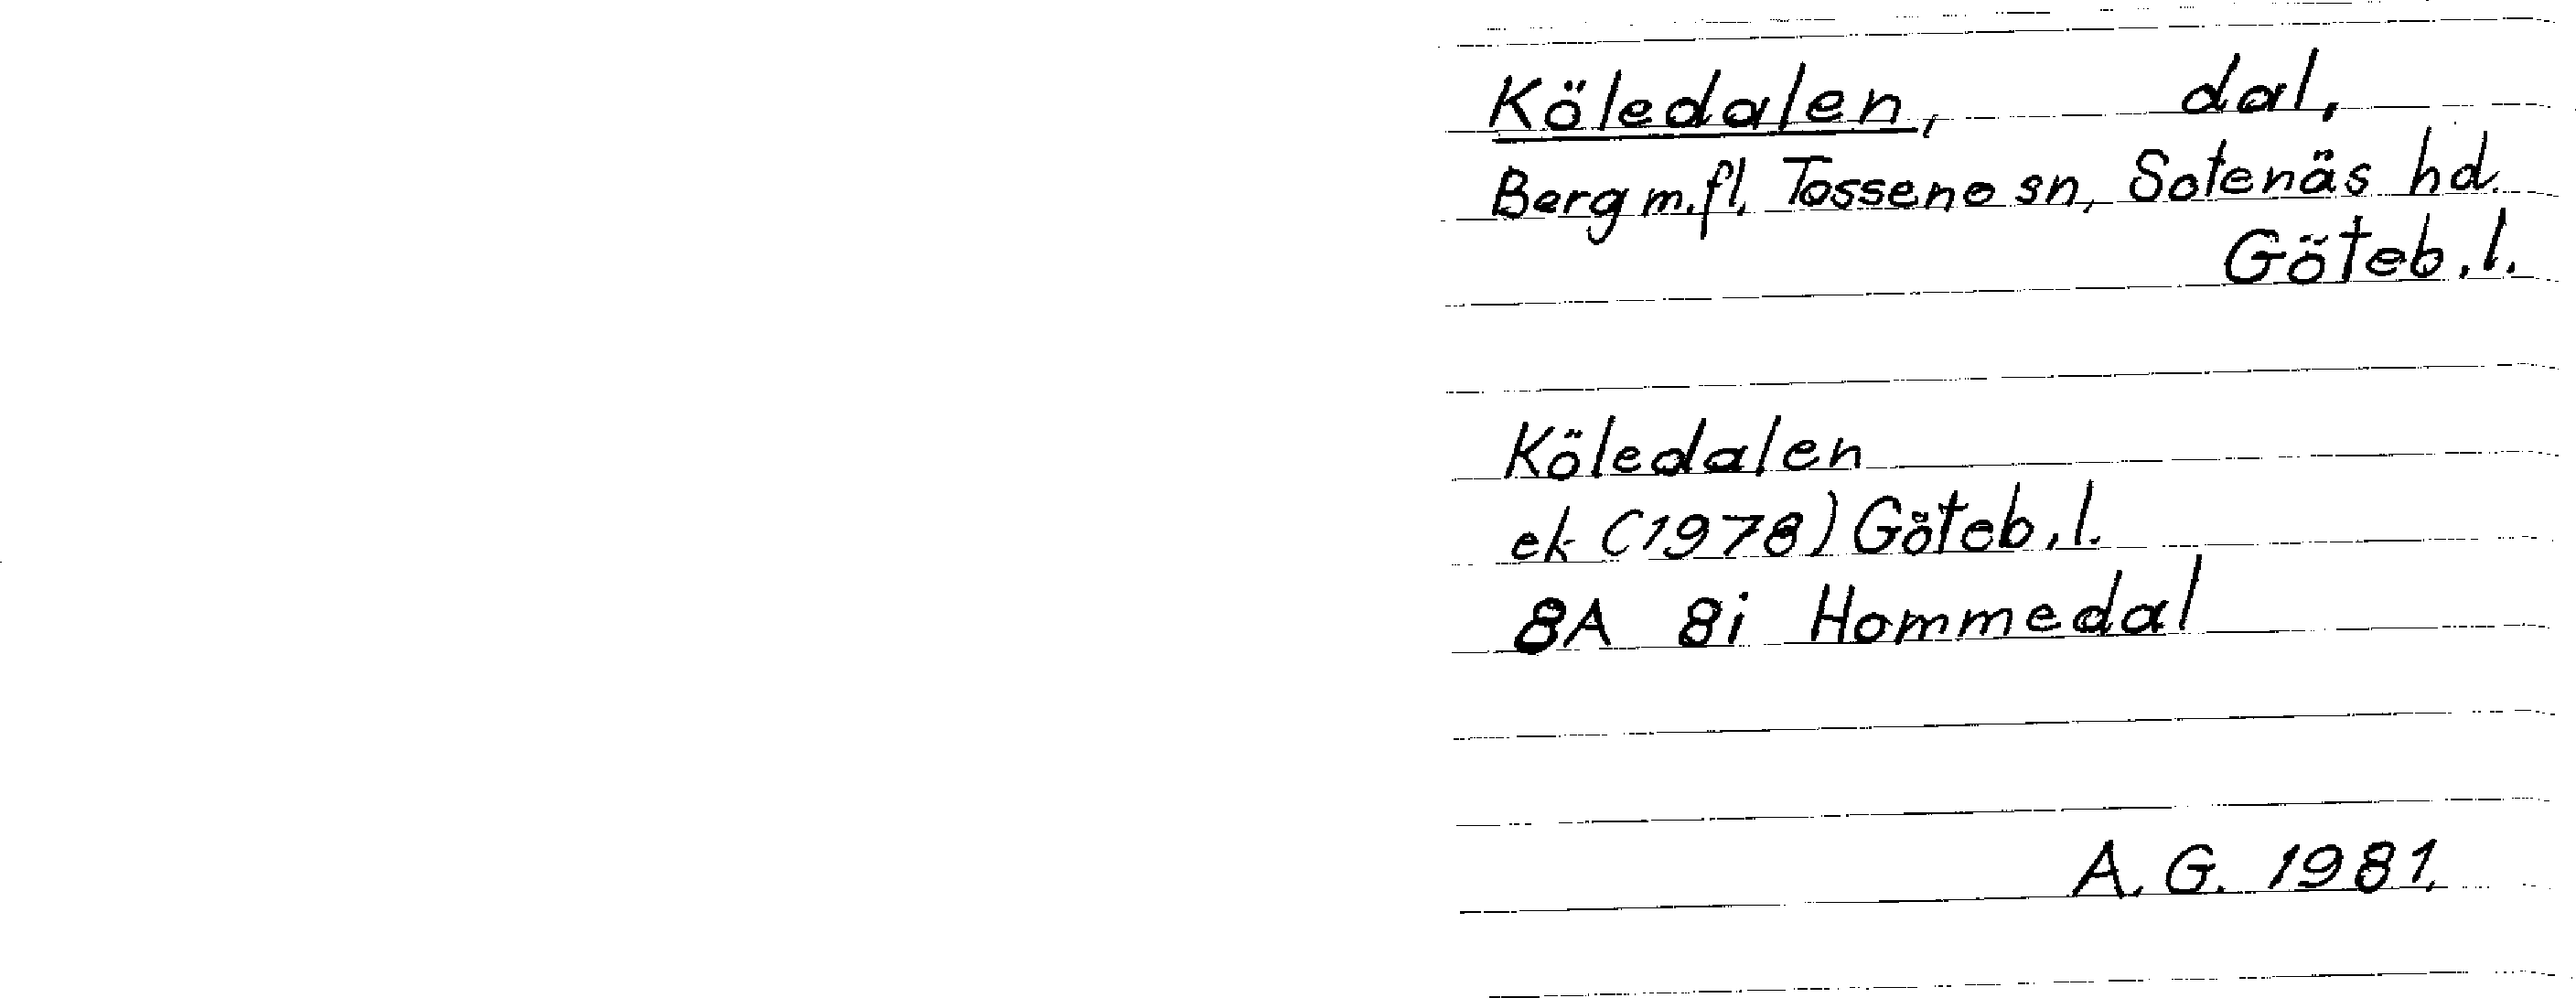 Köledalen, dal,
Berg m.fl. Tossene sn, Sotenäs hd.
Göteb.l.
Köledalen
ek (1978) Göteb.l.
8A 8i Hommedal
A.G. 1981.